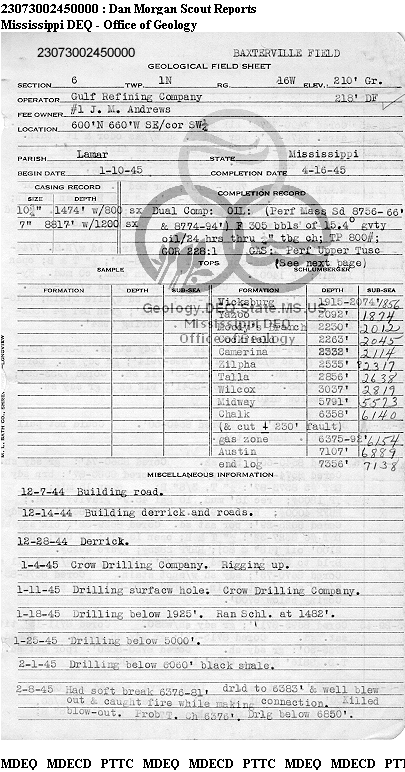 23073002450000 : Dan Morgan Scout Reports
Mississippi DEQ - Office of Geology
23073002450000 BAXTERVILLE FIELD
GEOLOGICAL FIELD SHEET
SECTION 6 TWP. 1N RG. 16W ELEV. 210' Gr.
OPERATOR Gulf Refining Company 218' DF
FEE OWNER #1 J. M. Andrews
LOCATION 600'N 660'W SE/cor SW¼
PARISH Lamar STATE Mississippi
BEGIN DATE 1-10-45 COMPLETION DATE 4-16-45
CASING RECORD COMPLETION RECORD
SIZE DEPTH
10¾" 1474' w/800 sx Dual Comp: OIL: (Perf Mass Sd 8756-66'
7" 8817' w/1200 sx & 8774-94') F 305 bbls of 15.4° gvty
oil/24 hrs thru " tbg ch; TP 800#;
GOR 228:1 GAS: Perf Upper Tusc
TOPS (See next page)
SAMPLE SCHLUMBERGER
FORMATION DEPTH SUB-SEA FORMATION DEPTH SUB-SEA
Vicksburg 1915-2074' 1856
Yazoo 2092' 1874
Moody's Branch 2230' 2012
Cockfield 2263' 2045
Camerina 2332' 2114
Zilpha 2535' 2317
Talla 2856' 2638
Wilcox 3037' 2819
Midway 5791' 5573
Chalk 6358' 6140
(& cut 230' fault)
gas zone 6375-92' 6154
Austin 7107' 6889
end log 7356' 7138
Geology.DEQ.State.MS.US
Mississippi DEQ
Office of Geology
W. L. BATH CO., SHREV. LONGVIEW
MISCELLANEOUS INFORMATION
12-7-44 Building road.
12-14-44 Building derrick and roads.
12-28-44 Derrick.
1-4-45 Crow Drilling Company. Rigging up.
1-11-45 Drilling surfacw hole: Crow Drilling Company.
1-18-45 Drilling below 1925'. Ran Schl. at 1482'.
1-25-45 Drilling below 5000'.
2-1-45 Drilling below 6060' black shale.
2-8-45 Had soft break 6376-81' drld to 6383' & well blew
out & caught fire while making connection. Killed
blow-out. Prob T. Ch 6376'. Drlg below 6850'.
MDEQ MDECD PTTC MDEQ MDECD PTTC MDEQ MDECD PTT